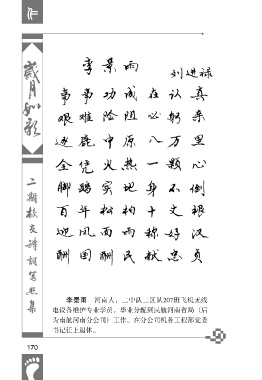 歲月如歌
二期校友诗词写照集
李景雨
刘进禄
事事功成在认真
艰难险阻必躬亲
逐鹿中原八万里
全凭火热一颗心
脚踏实地身不倒
百年松柏十丈根
迎风面雨称好汉
酬国酬民献忠贞
李景雨 河南人，二中队二区队207班飞机无线
电设备维护专业学员，毕业分配到民航河南省局（后
为南航河南分公司）工作，在分公司机务工程部党委
书记任上退休。
170